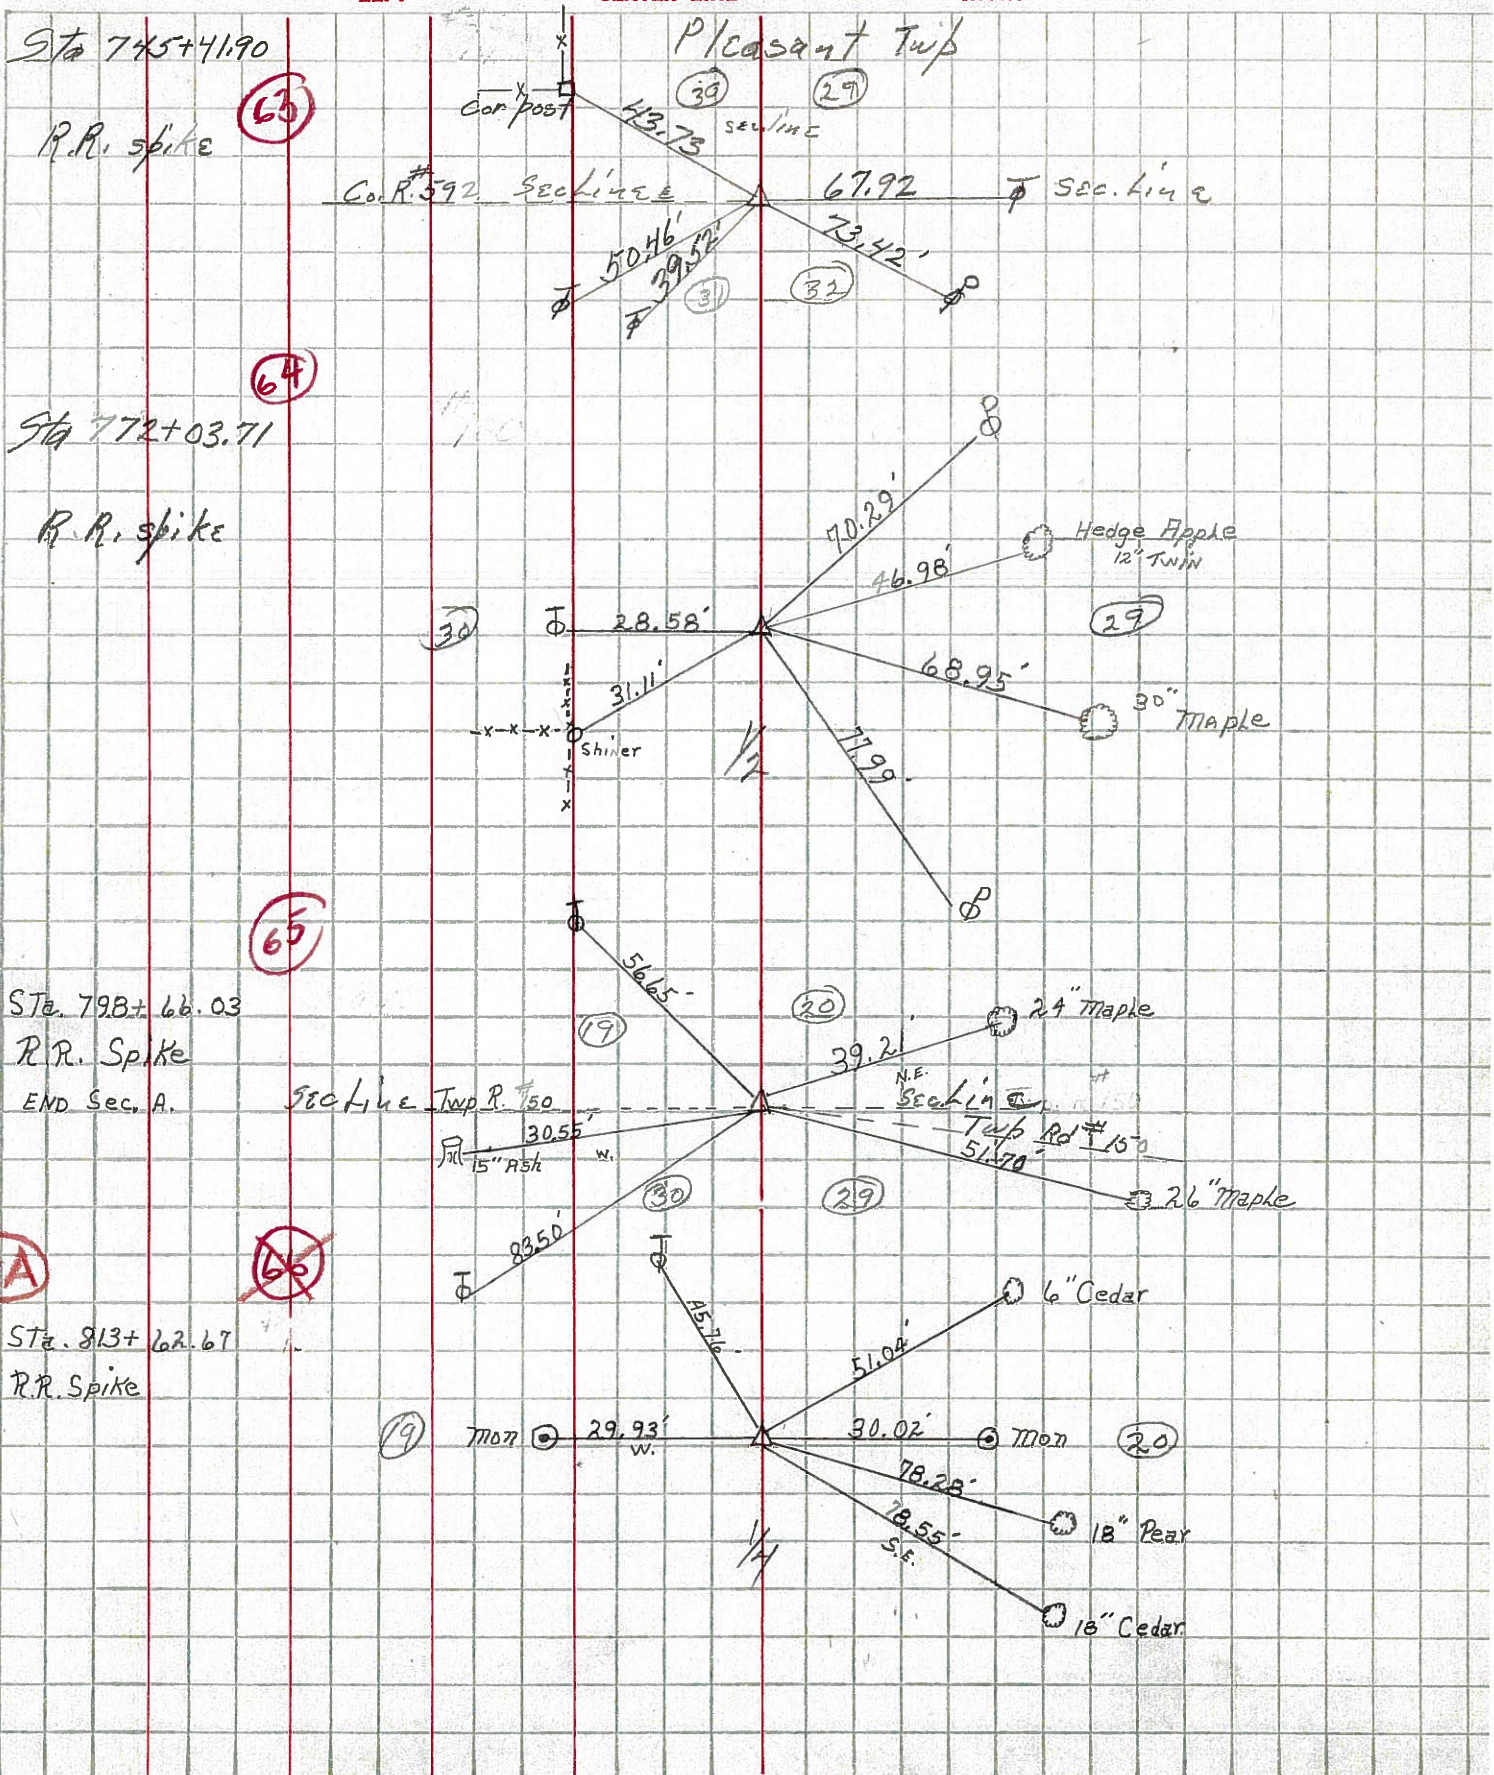 Sta 745+41.90
Pleasant Twp
63
R.R. spike
Cor. post
43.73
29
sec line
Co. R. #592 Sec Line
67.92
Sec. Line
50.46'
39.52'
73.42'
31
32
64
Sta 772+03.71
R.R. spike
70.29'
Hedge Apple
12" Twin
46.98'
30
28.58'
29
68.95'
31.11'
30" Maple
Shiner
1/2
77.99
65
56.65
Sta. 798+66.03
R.R. Spike
END Sec. A.
19
20
24" Maple
39.21'
N.E.
Sec Line Twp R. #150
Sec. Line
Twp Rd # 150
30.55'
15" Ash
W.
51.70
26" Maple
30
29
83.50'
A
66
45.76
6" Cedar
Sta. 813+62.67
R.R. Spike
51.04'
19
Mon
29.93'
W.
30.02'
Mon
20
78.28'
18" Pear
78.55'
S.E.
1/4
18" Cedar